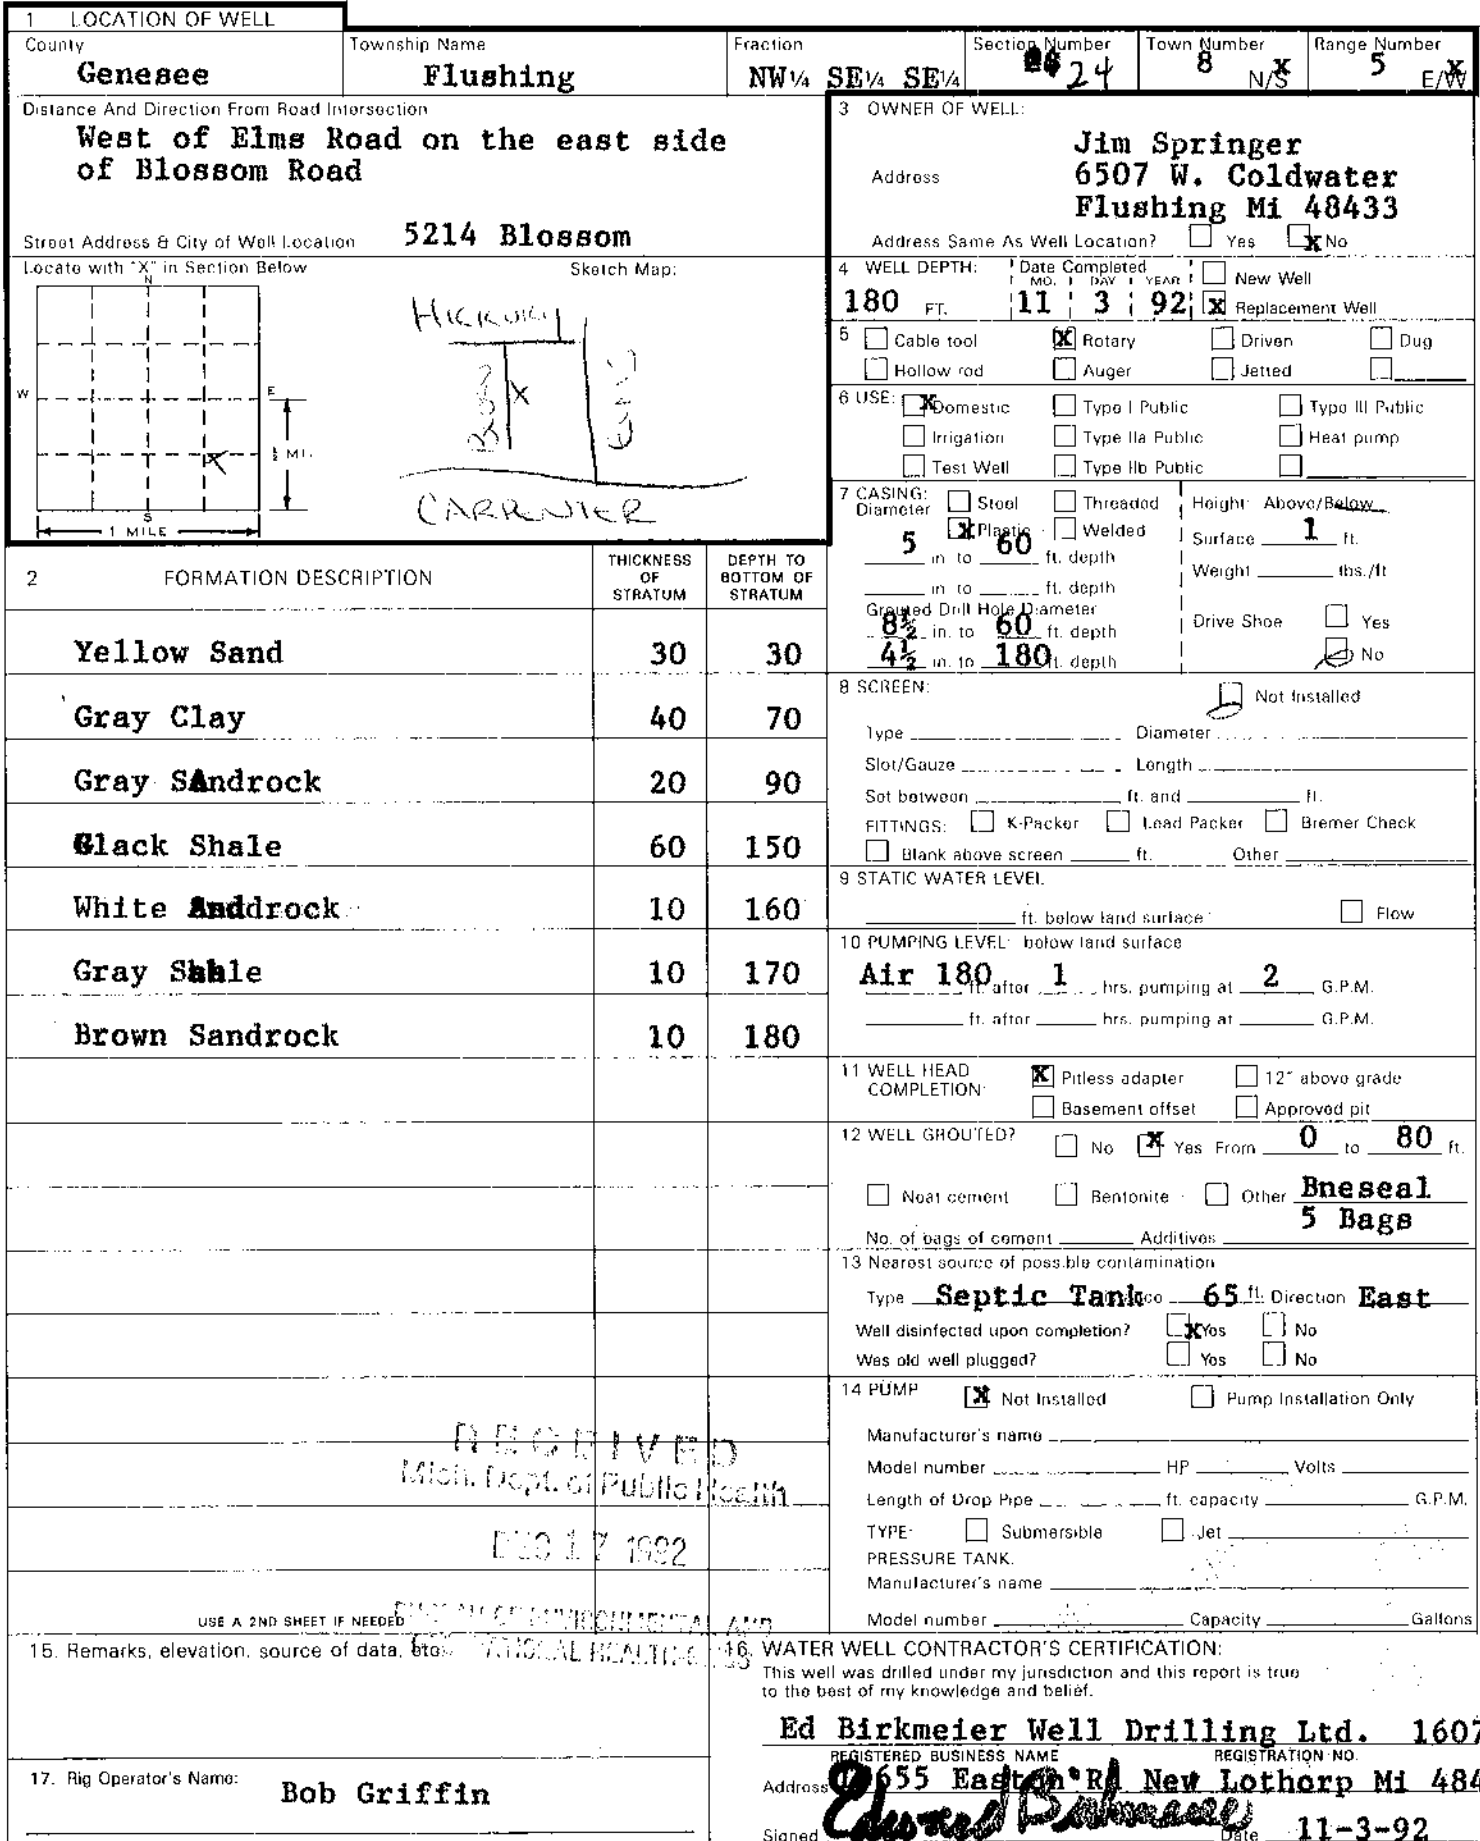 1 LOCATION OF WELL
County Township Name Fraction Section Number Town Number Range Number
Genesee Flushing NW¼ SE¼ SE¼ 24 8 N/S 5 E/W
Distance And Direction From Road Intersection
West of Elms Road on the east side
of Blossom Road
Street Address & City of Well Location 5214 Blossom
Locate with "X" in Section Below Sketch Map:
N
W E
S
½ MI.
1 MILE
X
HICKORY
X
ELMS
CARPENTER
3 OWNER OF WELL:
Jim Springer
Address 6507 W. Coldwater
Flushing Mi 48433
Address Same As Well Location? Yes X No
4 WELL DEPTH: Date Completed New Well
MO. DAY YEAR
180 FT. 11 3 92 X Replacement Well
5 Cable tool X Rotary Driven Dug
Hollow rod Auger Jetted
6 USE: X Domestic Type I Public Type III Public
Irrigation Type IIa Public Heat pump
Test Well Type IIb Public
7 CASING: Steel Threaded Height: Above/Below
Diameter X Plastic Welded Surface 1 ft.
5 in to 60 ft. depth
in to ft. depth Weight lbs./ft
Grouted Drill Hole Diameter
8½ in. to 60 ft. depth Drive Shoe Yes
4½ in. to 180 ft. depth No
8 SCREEN: Not Installed
Type Diameter
Slot/Gauze Length
Set between ft. and ft.
FITTINGS: K-Packer Lead Packer Bremer Check
Blank above screen ft. Other
9 STATIC WATER LEVEL
ft. below land surface Flow
10 PUMPING LEVEL: below land surface
Air 180 ft. after 1 hrs. pumping at 2 G.P.M.
ft. after hrs. pumping at G.P.M.
11 WELL HEAD X Pitless adapter 12" above grade
COMPLETION: Basement offset Approved pit
12 WELL GROUTED? No X Yes From 0 to 80 ft.
Neat cement Bentonite Other Bneseal
5 Bags
No. of bags of cement Additives
13 Nearest source of possible contamination
Type Septic Tank 65 ft. Direction East
Well disinfected upon completion? X Yes No
Was old well plugged? Yes No
14 PUMP X Not Installed Pump Installation Only
Manufacturer's name
Model number HP Volts
Length of Drop Pipe ft. capacity G.P.M.
TYPE: Submersible Jet
PRESSURE TANK.
Manufacturer's name
Model number Capacity Gallons
2 FORMATION DESCRIPTION THICKNESS OF STRATUM DEPTH TO BOTTOM OF STRATUM
Yellow Sand 30 30
Gray Clay 40 70
Gray SAndrock 20 90
Black Shale 60 150
White Anddrock 10 160
Gray Shale 10 170
Brown Sandrock 10 180
RECEIVED
Mich. Dept. of Public Health
DEC 17 1992
ENVIRONMENTAL AND
HEALTH
USE A 2ND SHEET IF NEEDED
15. Remarks, elevation, source of data, etc.
17. Rig Operator's Name: Bob Griffin
16. WATER WELL CONTRACTOR'S CERTIFICATION:
This well was drilled under my jurisdiction and this report is true
to the best of my knowledge and belief.
Ed Birkmeier Well Drilling Ltd. 1607
REGISTERED BUSINESS NAME REGISTRATION NO.
Address 655 Easton Rd New Lothorp Mi 484
Signed Edward Birkmeier Date 11-3-92